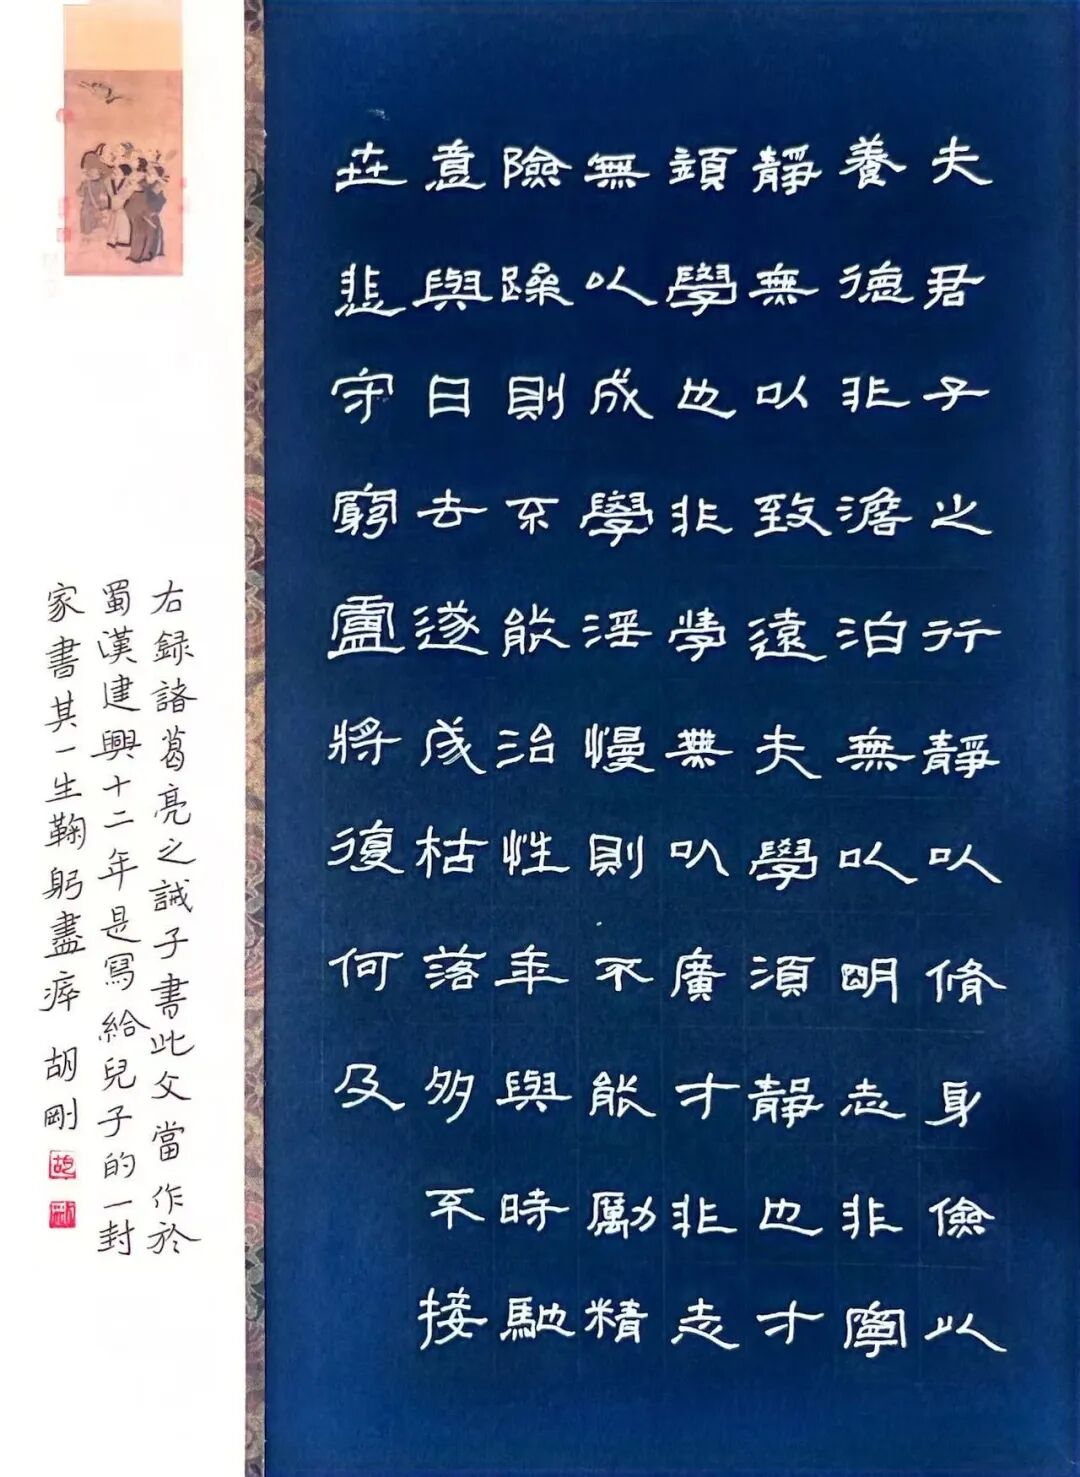 夫君子之行靜以脩身儉以
養德非澹泊無以明志非寧
靜無以致遠夫學須靜也才
須學也非學無以廣才非志
無以成學淫慢則不能勵精
險躁則不能治性年與時馳
意與日去遂成枯落多不接
世悲守窮盧將復何及
右録諸葛亮之誡子書此文當作於
蜀漢建興十二年是寫給兒子的一封
家書其一生鞠躬盡瘁 胡剛
胡
剛